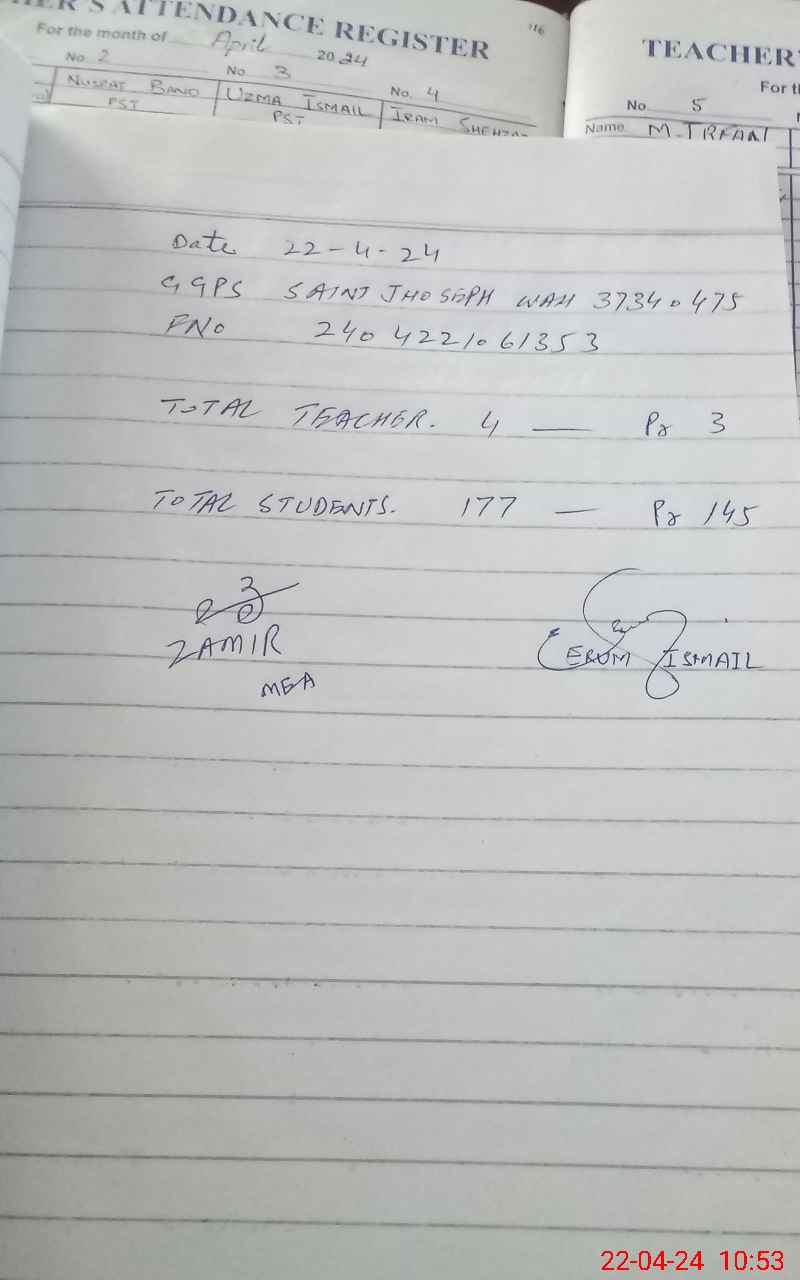 TEACHER'S ATTENDANCE REGISTER
For the month of April 2024
No 2 No 3 No. 4
NUSRAT BANO UZMA ISMAIL IRAM
PST PST
TEACHER'
For th
No 5
Name M. IRFAN
Date 22-4-24
GGPS SAINT JHOSEPH WAH 37340475
FNo 2404221061353
TOTAL TEACHER. 4 — Pr 3
TOTAL STUDENTS. 177 — Pr 145
ZAMIR
MEA
ERUM ISMAIL
22-04-24 10:53